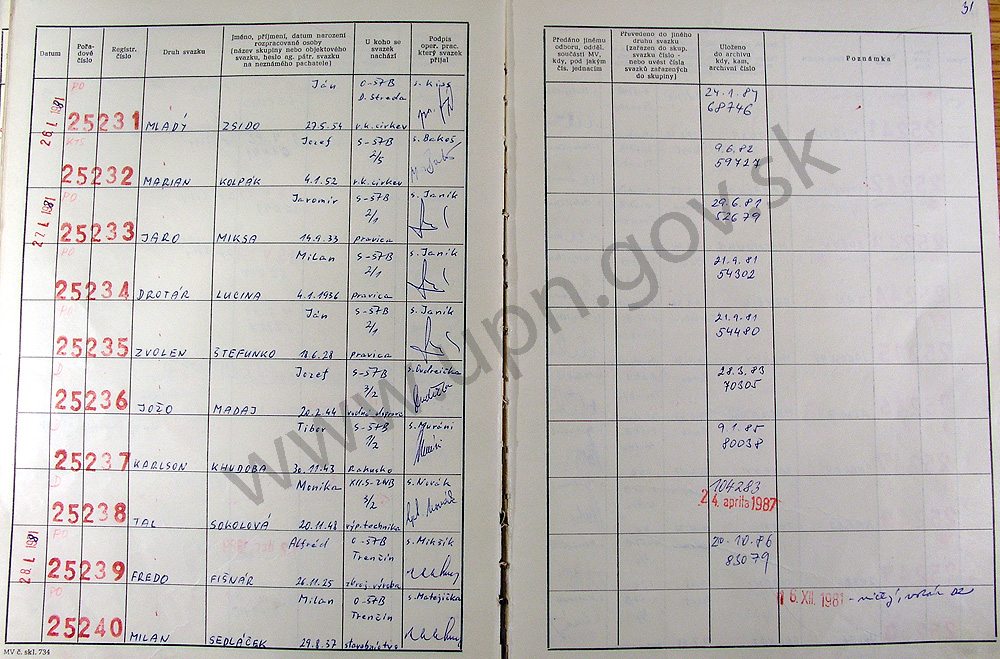 31
Datum
Pořadové číslo
Registr. číslo
Druh svazku
Jméno, příjmení, datum narození
rozpracované osoby
(název skupiny nebo objektového
svazku, heslo ag. pátr. svazku
na neznámého pachatele)
U koho se
svazek
nachází
Podpis
oper. prac.
který svazek
přijal
Předáno jinému
odboru, odděl.
součásti MV,
kdy, pod jakým
čís. jednacím
Převedeno do jiného
druhu svazku
(zařazen do skup.
svazku číslo -
nebo uvést čísla
svazků zařazených
do skupiny)
Uloženo
do archivu
kdy, kam,
archivní číslo
Poznámka
26. I. 1981
PO Ján O-ŠTB s. Kiss 24.1.84
D. Streda 68746
25231 MLADÝ ZSIDO 27.5.54 r.k. cirkev
KTS Jozef S-ŠTB s. Bakoš 9.6.82
2/5 59727
25232 MARIAN KOLPÁK 4.1.52 r.k. cirkev
27. I. 1981
PO Jaromír S-ŠTB s. Janík 29.6.81
2/1 52679
25233 JARO MIKSA 14.9.33 pravica
PO Milan S-ŠTB s. Janík 21.9.81
2/1 54302
25234 DROTÁR LUCINA 4.1.1936 pravica
PO Ján S-ŠTB s. Janík 21.9.81
2/1 54480
25235 ZVOLEN ŠTEFUNKO 18.6.28 pravica
D Jozef S-ŠTB s. Ondreička 28.3.83
3/2 70305
25236 JOŽO MADAJ 20.2.44 vodná doprava
Tibor S-ŠTB s. Muráni 9.1.85
1/2 80038
25237 KARLSON KHUDOBA 30.11.43 Rakusko
D Monika XII.S-ZNB s. Novák 104283
3/2 24. apríla 1987
25238 TAL SOKOLOVÁ 20.11.48 výp. technika
28. I. 1981
PO Alfréd O-ŠTB s. Mikšík 20.10.86
Trenčín 83079
25239 FREDO FIŠNÁR 26.11.25 zbroj. výroba
PO Milan O-ŠTB s. Matejička 16. XII. 1981
Trenčín
25240 MILAN SEDLÁČEK 29.8.37 stavebníctvo
MV č. skl. 734
www.upn.gov.sk